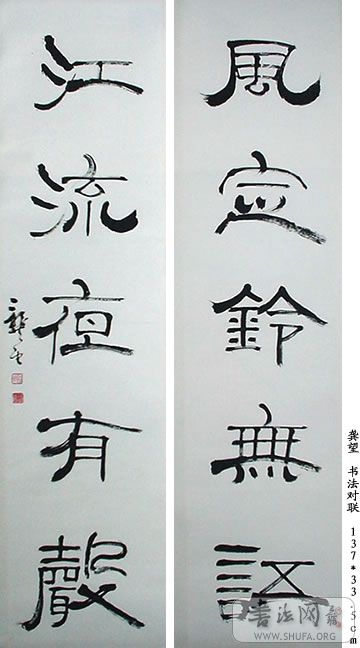 風定鈴無語
江流夜有聲
龔望
龚望 书法对联 137*33.5cm
书法网
WWW.SHUFA.ORG